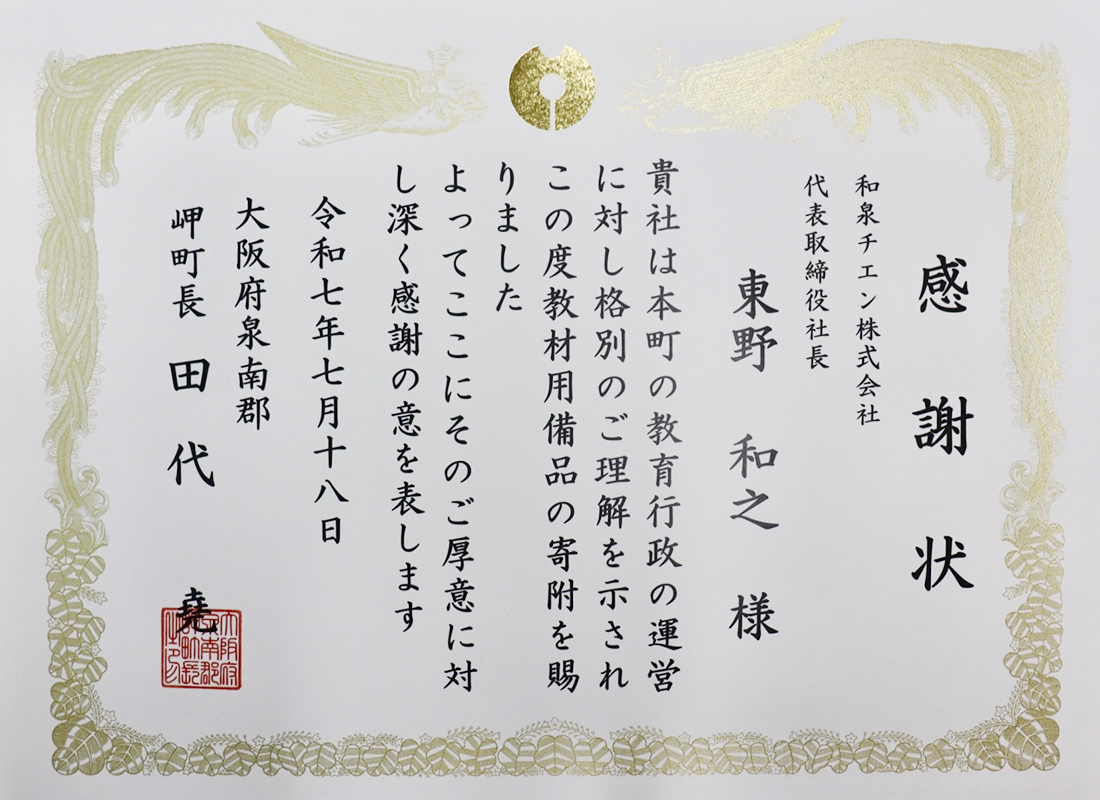 感謝状
和泉チエン株式会社
代表取締役社長
東野 和之 様
貴社は本町の教育行政の運営
に対し格別のご理解を示され
この度教材用備品の寄附を賜
りました
よってここにそのご厚意に対
し深く感謝の意を表します
令和七年七月十八日
大阪府泉南郡
岬町長 田代 堯
大阪府
泉南郡
岬町長
之印